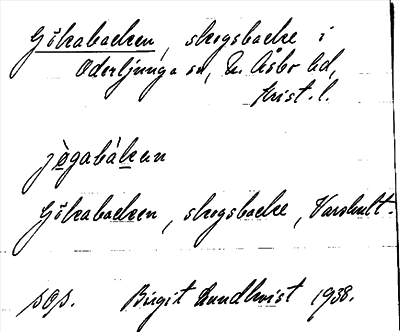 Gökabacken, skogsbacke i
Oderljunga sn, N. Åsbo hd,
Krist. l.
jøgabákan
Gökabacken, skogsbacke, Varshult.
pgp. Birgit Lundkvist 1938.